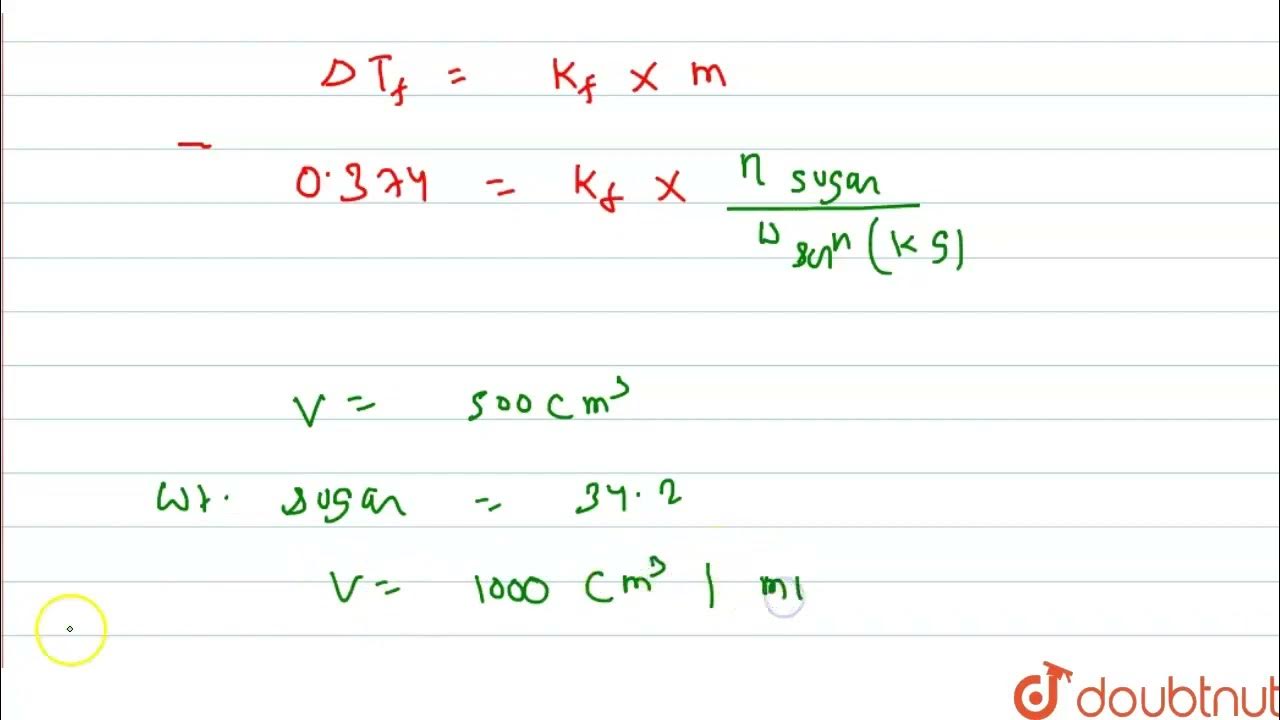 Δ T_f = K_f × m
0.374 = K_f × n sugar / W solⁿ (kg)
V = 500 cm³
Wt. sugar = 34.2
V = 1000 cm³ | ml
doubtnut